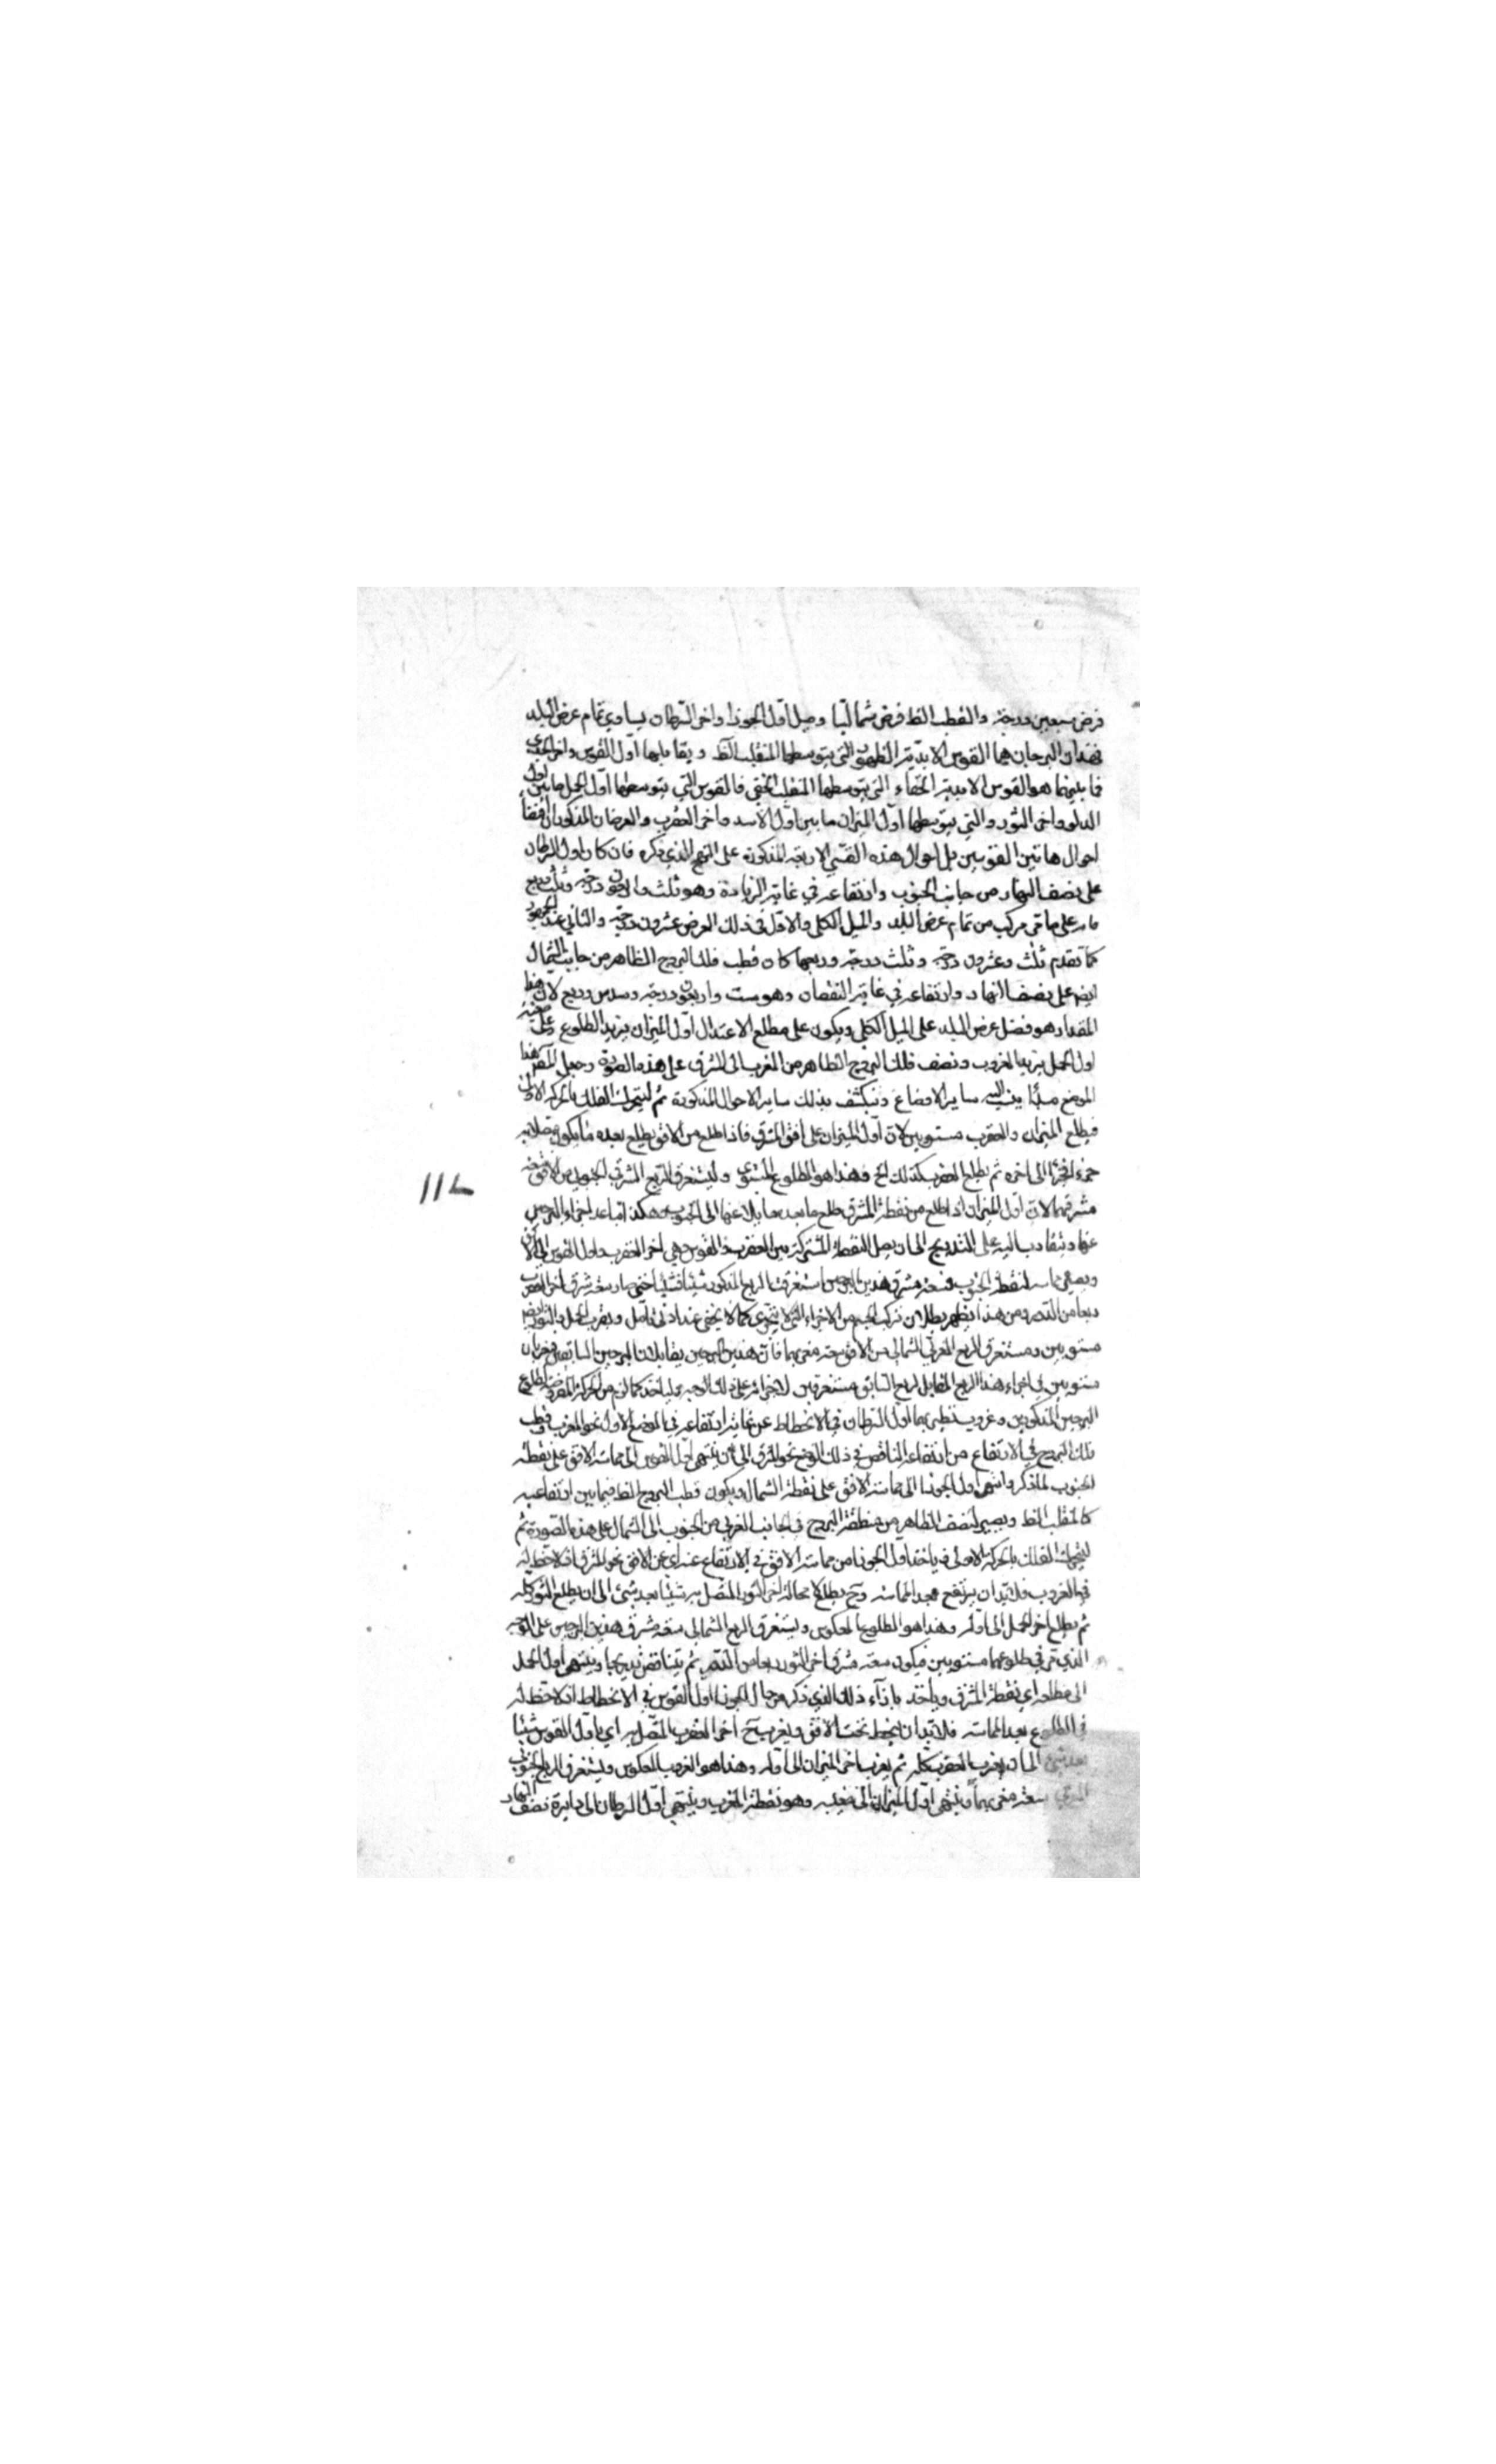 فرض سبعين درجة والقطب الظ فرض شماليا وميل اول الجوزا واخر السرطان يساوي تمام عرض البلد
فهذان البرجان هما القوس الابدية الظهور التي يتوسطها المنقلب الظ ويقابلها اول القوس واخر الجدي
فما بينهما هو القوس الابدية الخفاء التي يتوسطها المنقلب الخفي فالقوس التي يتوسطها اول الحمل ما بين اول
الدلو واخر الثور والتي يتوسطها اول الميزان ما بين اول الاسد واخر العقرب والعرضان المذكوران
احوال هاتين القوسين بل احوال هذه القسي الاربعة المذكورة على النهج الذي ذكره فان كان اول السرطان
على نصف النهار من جانب الجنوب وارتفاعه في غاية الزيادة وهو ثلث واربعون درجة وثلث وربع
على ما مر مركب من تمام عرض البلد والميل الكلي والاول في ذلك العرض عشرون درجة والثاني
كما تقدم ثلث وعشرون درجة وثلث درجة وربعها كان قطب فلك البروج الظاهر من جانب الشمال
ايضا على نصف النهار وارتفاعه في غاية النقصان وهو ست واربعون درجة وسدس وربع لان هذا
المقدار هو فضل عرض البلد على الميل الكلي ويكون على مطلع الاعتدال اول الميزان يريد الطلوع وعلى مغيبه
اول الحمل يريد الغروب ونصف فلك البروج الظاهر من المغرب الى المشرق على هذه الصورة وجعل هذا
الموضع مبدأ ينسب اليه ساير الاوضاع وتنكشف بذلك ساير الاحوال المذكورة ثم ليتحرك الفلك بالحركة الاولى
فيطلع الميزان والعقرب مستويين لان اول الميزان على افق المشرق فاذا طلع من الافق يطلع بعده ما يكون متصلا به
جزء فجزء الى اخره ثم يطلع العقرب كذلك الخ وهذا هو الطلوع المستوي وليستغرق الربع المشرقي الجنوبي من الافق سعة
مشرقهما لان اول الميزان اذا طلع من نقطة المشرق طلع ما بعده مايلا عنها الى الجنوب وهكذا تباعد اجزاء البرجين
عنها ويتقارب اليه على التدريج الى ان يصل النقطة المشتركة بين العقرب والقوس وهي اخر العقرب واول القوس الى الافق
ويصير مماسه لنقطة الجنوب فسعة مشرق هذين البرجين استغرقت الربع المذكور شيئا فشيئا حتى صار سعة مشرق اخر العقرب
ربعا من الدور ومن هذا يظهر بطلان تركب الجسم من الاجزاء التي لا تتجزى كما لا يخفى عند ادنى تامل ويغرب الحمل والثور ايضا
مستويين ومستغرق الربع المغربي الشمالي من الافق سعة مغربهما فان هذين البرجين يقابلان البرجين السابقين فيغربان
مستويين في اجزاء هذا الربع المقابل لربع السابق مستغرقين لاجزائه على ذلك الوجه وليأخذ كما لزم من الحركة المفروضة طلوع
البرجين المذكورين وغروب نظيريهما اول السرطان في الانحطاط عن غاية ارتفاعه في الموضع الاول نحو المغرب وقطب
فلك البروج في الارتفاع من ارتفاعه الناقص في ذلك الوضع نحو المشرق الى ان ينتهي اول القوس الى مماسة الافق على نقطة
الجنوب لما ذكر وانتهى اول الجوزا الى مماسة الافق على نقطة الشمال ويكون قطب البروج الظ فيما بين ارتفاعيه
كالمنقلب الظ ويصير النصف الظاهر من منطقة البروج في الجانب الغربي من الجنوب الى الشمال على هذه الصورة ثم
ليتحرك الفلك بالحركة الاولى فياخذ اول الجوزا من مماسة الافق في الارتفاع عنه اي عن الافق نحو المشرق اذ لا حظ له
في الغروب فلا بد ان يرتفع بعد المماسة وح يطلع لا محالة اخر الثور المتصل به شيئا بعد شئ الى ان يطلع الثور كله
ثم يطلع اخر الحمل الى اوله وهذا هو الطلوع المعكوس ويستغرق الربع الشمالي سعة مشرق هذين البرجين على الوجه
الذي مر في طلوعهما مستويين فيكون سعة مشرق اخر الثور ربعا من الدور ثم يتناقص تدريجا وينتهي اول الحمل
الى مطلعه اي نقطة المشرق وياخذ بازاء ذلك الذي ذكر من حال الجوزا اول القوس في الانحطاط اذ لا حظ له
في الطلوع بعد المماسة فلا بد ان ينحط تحت الافق ويغرب ح اخر العقرب المتصل به اي باول القوس شيئا
بعد شئ الى ان يغرب العقرب كله ثم يغرب اخر الميزان الى اوله وهذا هو الغروب المعكوس ويستغرق الربع الجنوبي
سعة مغربهما وينتهي اول الميزان الى مغيبه وهو نقطة المغرب وينتهي اول السرطان الى دايرة نصف النهار